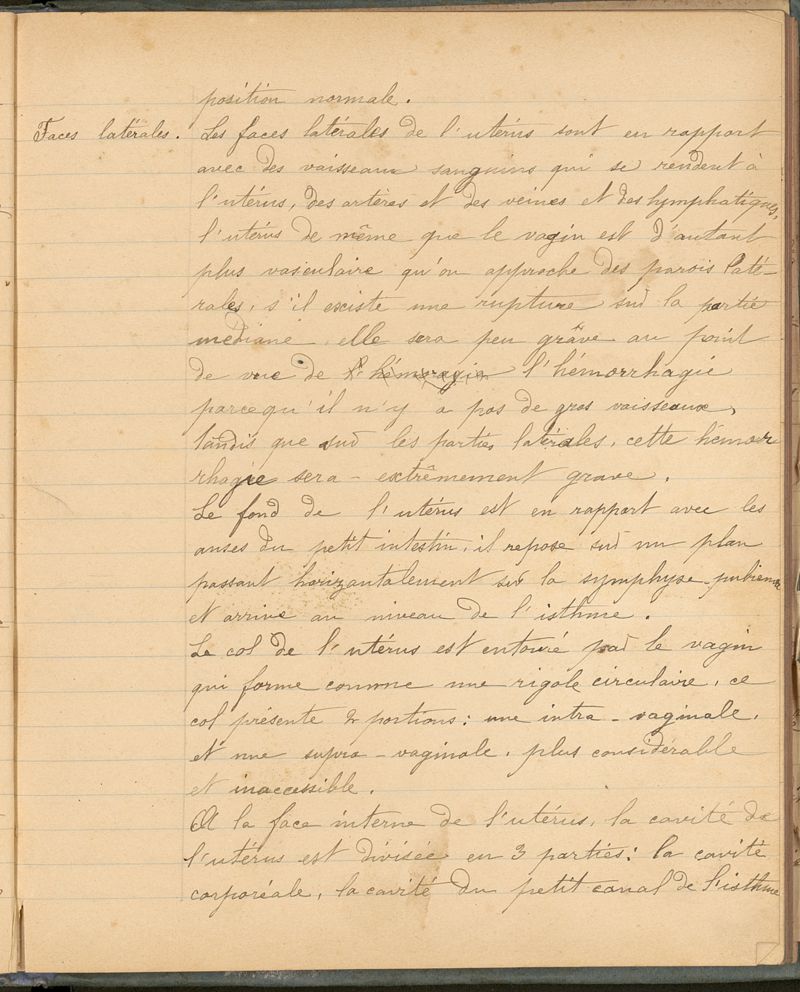 position normale.
Faces latérales. Les faces latérales de l'utérus sont en rapport
avec des vaisseaux sanguins qui se rendent à
l'utérus, des artères et des veines et des lymphatiques,
l'utérus de même que le vagin est d'autant
plus vasculaire qu'on approche des parois laté-
rales, s'il existe une rupture sur la partie
médiane, elle sera peu grave au point
de vue de l'hémorragie l'hémorrhagie
parcequ'il n'y a pas de gros vaisseaux,
tandis que sur les parties latérales, cette hémor
rhagie sera - extrêmement grave.
Le fond de l'utérus est en rapport avec les
anses du petit intestin, il repose sur un plan
passant horizontalement sur la symphyse pubienne
et arrive au niveau de l'isthme.
Le col de l'utérus est entouré par le vagin
qui forme comme une rigole circulaire, ce
col présente 2 portions: une intra-vaginale,
et une supra-vaginale, plus considérable
et inaccessible.
A la face interne de l'utérus, la cavité de
l'utérus est divisée en 3 parties: la cavité
corporéale, la cavité du petit canal de l'isthme